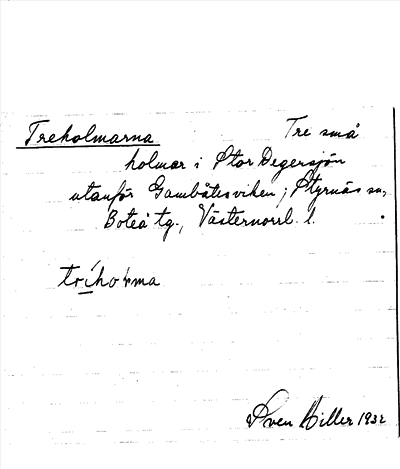 Treholmarna Tre små
holmar i Stor Degersjön
utanför Gambåtesviken; Styrnäs sn,
Boteå tg., Västernorrl. l.
Sven Hiller 1932